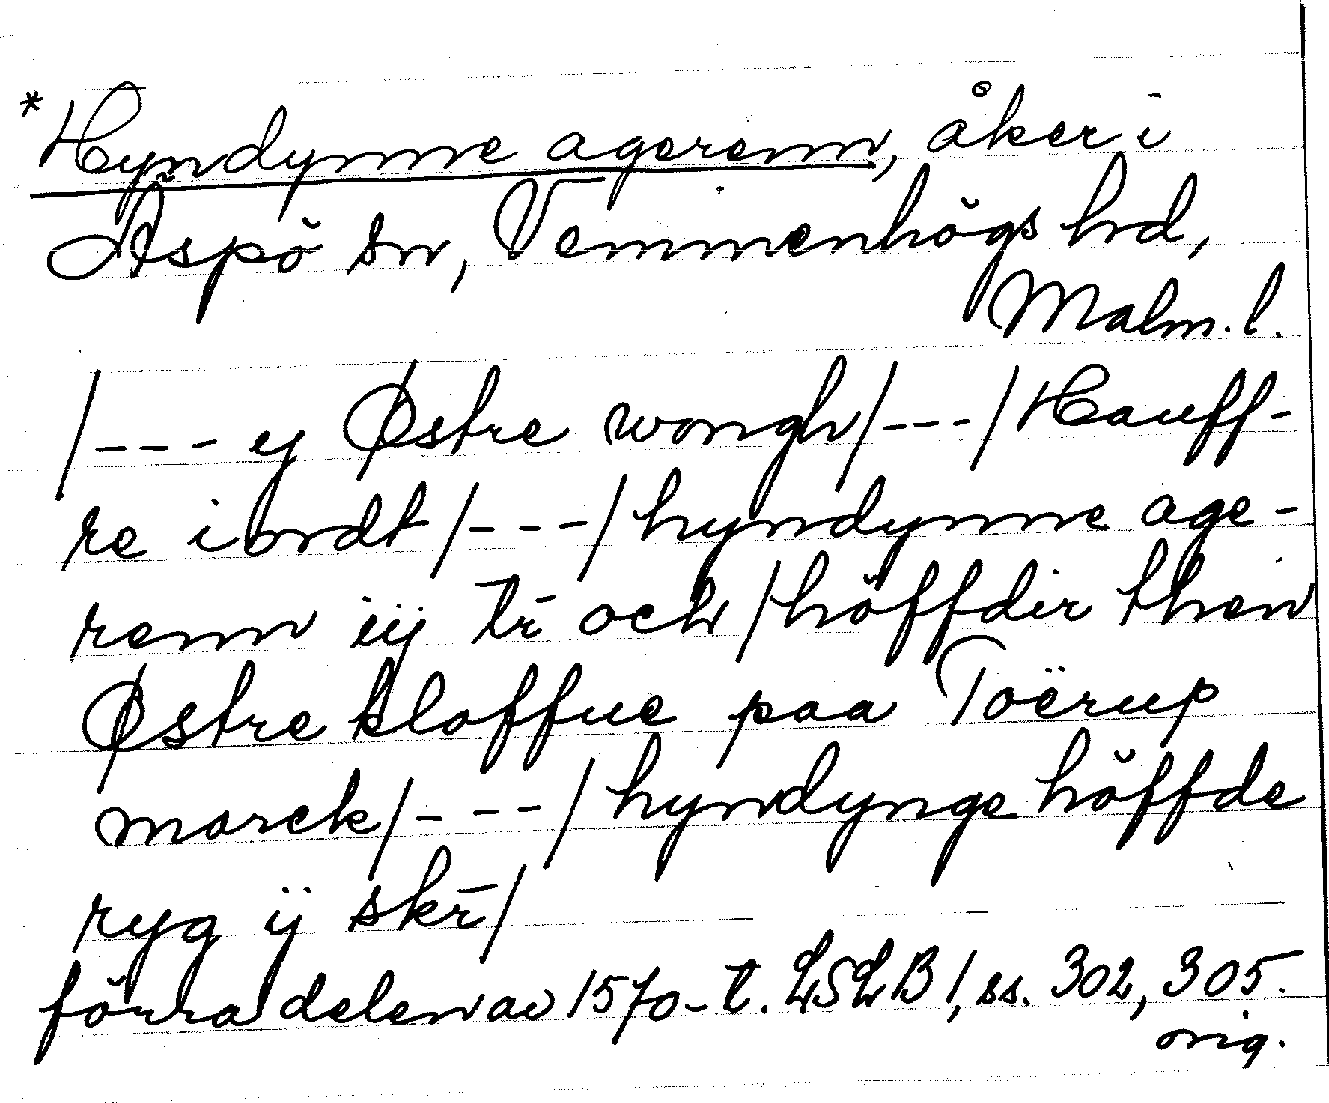 *Hyndynne agerenn, åker i
Äspö sn, Vemmenhögs hd,
Malm. l.
/--- ij Østre wongh/---/Hauff-
re iordt/---/hyndynne age-
renn iij tr̄ och/höffdir then
Østre kloffue paa Toërup
marck/---/hyndynge höffde
ryg ij skr̄/
förra delen av 1570-t. LSLB 1, ss. 302, 305.
orig.